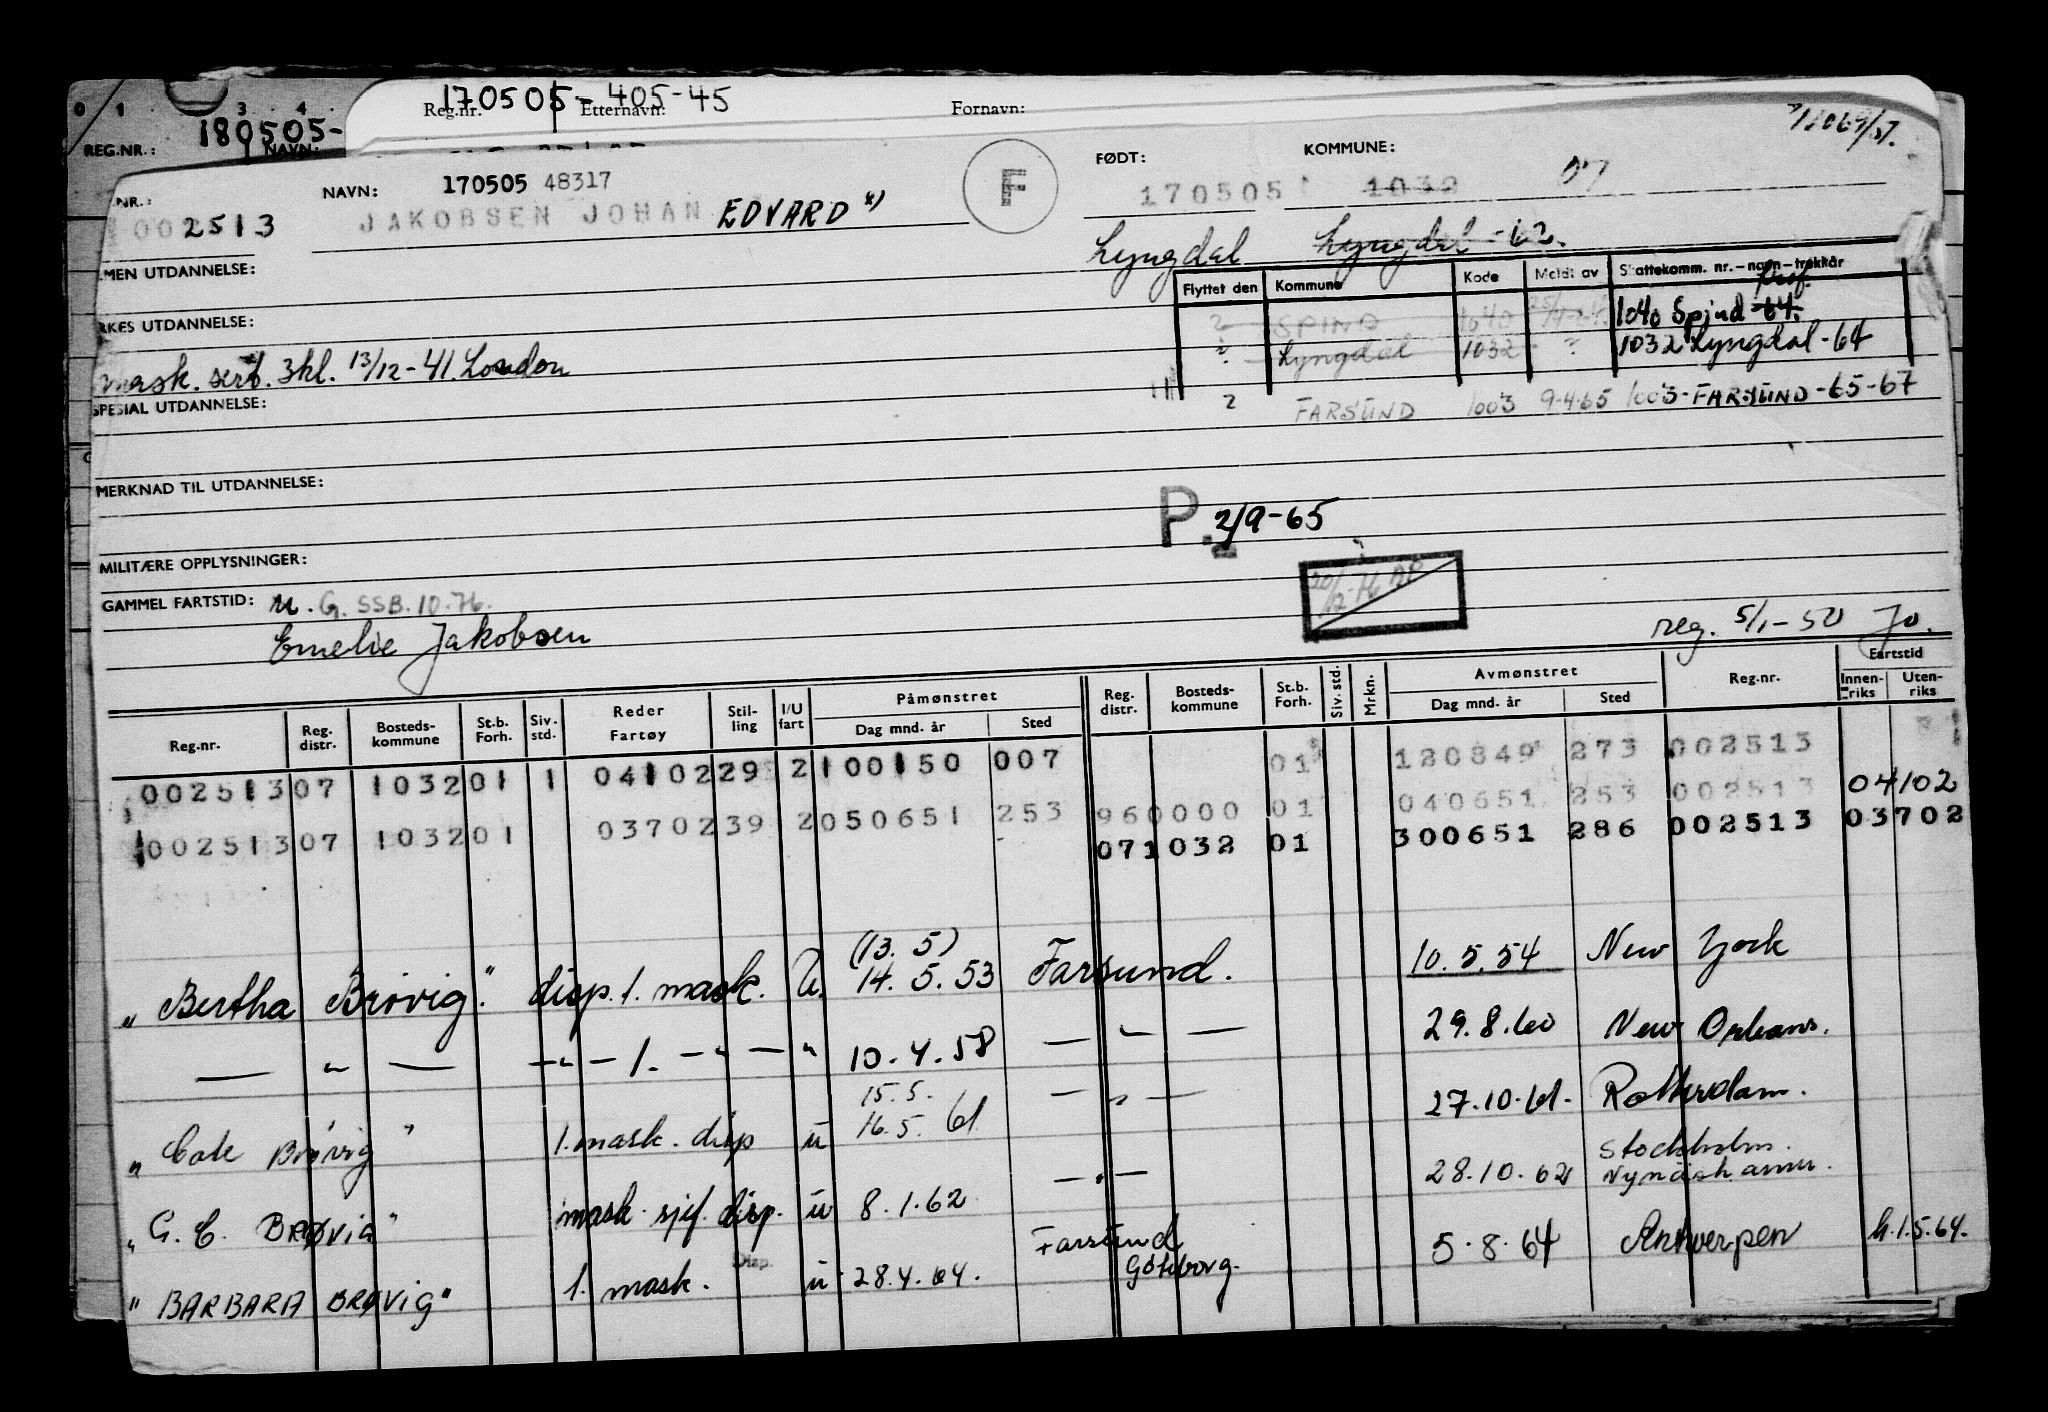 0 1 3 4
Reg.nr. 170505-405-45 Etternavn: Fornavn:
REG.NR.: 180505- NAVN:
.NR.: NAVN: 170505 48317 F FØDT: KOMMUNE:
002513 JAKOBSEN JOHAN EDVARD 170505 1032 07
Lyngdal Lyngdal -62.
MEN UTDANNELSE:
Flyttet den Kommune Kode Meldt av Skattekomm. nr.-navn-trekkår
? SPIND 1040 1040 Spind -64.
RKES UTDANNELSE:
? Lyngdal 1032 ? 1032 Lyngdal -64
mask. sert. 3kl. 13/12-41. London
? FARSUND 1003 9-4-65 1003-FARSUND-65-67
SPESIAL UTDANNELSE:
MERKNAD TIL UTDANNELSE:
P. 2/9-65
MILITÆRE OPPLYSNINGER:
GAMMEL FARTSTID: M. G. SSB. 10.76.
Emelie Jakobsen reg. 5/1-50 Jo.
Påmønstret Avmønstret Fartstid
Reg.nr. Reg. distr. Bosteds-kommune St.b. Forh. Siv. std. Reder Fartøy Stil-ling I/U fart Dag mnd. år Sted Reg. distr. Bosteds-kommune St.b. Forh. Siv. std. Mrkn. Dag mnd. år Sted Reg.nr. Innen-riks Uten-riks
002513 07 1032 01 1 04102 29 2 100150 007 01 120849 273 002513
960000 01 040651 253 002513 04102
002513 07 1032 01 03702 39 2 050651 253 071032 01 300651 286 002513 03702
(13. 5)
"Bertha Brøvig" disp. 1. mask. U. 14. 5. 53 Farsund. 10. 5. 54 New York
— " — —"— 1. —"— " 10. 4. 58 — " — 29. 8. 60 New Orleans.
15. 5.
"Cate Brøvig" 1. mask. disp u 16. 5. 61 — " — 27. 10. 61. Rotterdam.
Stockholm.
"G. C. BRØVIG" mask. sjef. disp. u 8. 1. 62 — " — 28. 10. 62 Nynäshamn.
Farsund
"BARBARA BRØVIG" 1. mask. Disp. u 28. 4. 64. Göteborg. 5. 8. 64 Antwerpen h. 1. 5. 64.